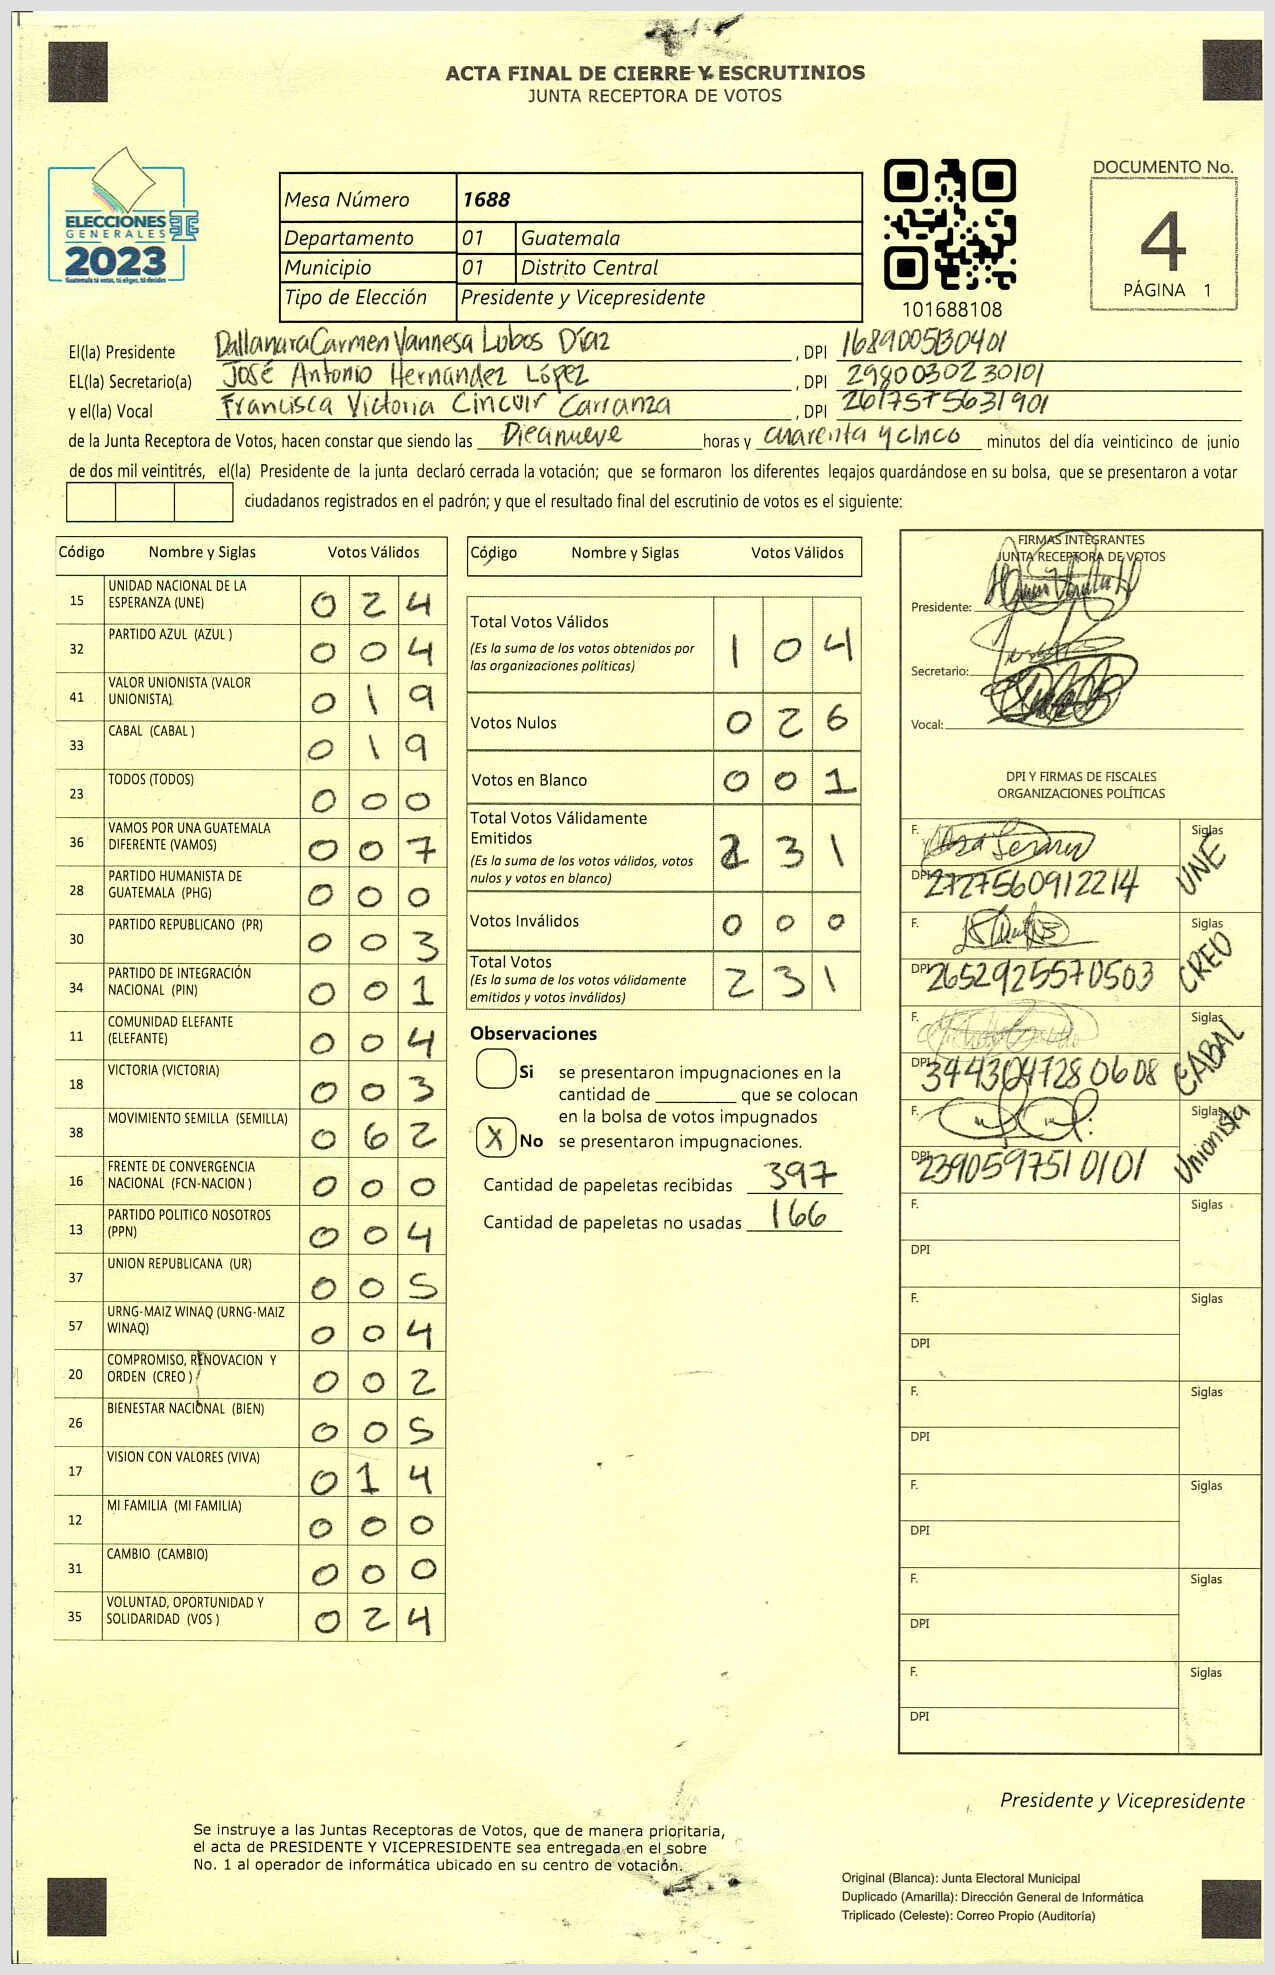 ACTA FINAL DE CIERRE Y ESCRUTINIOS
JUNTA RECEPTORA DE VOTOS
ELECCIONES
GENERALES
2023
Guatemala tú votas, tú eliges, tú decides
Mesa Número 1688
Departamento 01 Guatemala
Municipio 01 Distrito Central
Tipo de Elección Presidente y Vicepresidente
101688108
DOCUMENTO No.
4
PÁGINA 1
El(la) Presidente Dallanara Carmen Vannesa Lobos Díaz, DPI
EL(la) Secretario(a) José Antonio Hernández López, DPI 2980030230101
y el(la) Vocal Francisca Victoria Cincuir Carranza, DPI 2617575631901
de la Junta Receptora de Votos, hacen constar que siendo las Diecinueve horas y cuarenta y cinco minutos del día veinticinco de junio
de dos mil veintitrés, el(la) Presidente de la junta declaró cerrada la votación; que se formaron los diferentes legajos guardándose en su bolsa, que se presentaron a votar
ciudadanos registrados en el padrón; y que el resultado final del escrutinio de votos es el siguiente:
Código Nombre y Siglas Votos Válidos
15 UNIDAD NACIONAL DE LA ESPERANZA (UNE) 0 2 4
32 PARTIDO AZUL (AZUL ) 0 0 4
41 VALOR UNIONISTA (VALOR UNIONISTA) 0 1 9
33 CABAL (CABAL ) 0 1 9
23 TODOS (TODOS) 0 0 0
36 VAMOS POR UNA GUATEMALA DIFERENTE (VAMOS) 0 0 7
28 PARTIDO HUMANISTA DE GUATEMALA (PHG) 0 0 0
30 PARTIDO REPUBLICANO (PR) 0 0 3
34 PARTIDO DE INTEGRACIÓN NACIONAL (PIN) 0 0 1
11 COMUNIDAD ELEFANTE (ELEFANTE) 0 0 4
18 VICTORIA (VICTORIA) 0 0 3
38 MOVIMIENTO SEMILLA (SEMILLA) 0 6 2
16 FRENTE DE CONVERGENCIA NACIONAL (FCN-NACION ) 0 0 0
13 PARTIDO POLITICO NOSOTROS (PPN) 0 0 4
37 UNION REPUBLICANA (UR) 0 0 5
57 URNG-MAIZ WINAQ (URNG-MAIZ WINAQ) 0 0 4
20 COMPROMISO, RENOVACION Y ORDEN (CREO ) 0 0 2
26 BIENESTAR NACIONAL (BIEN) 0 0 5
17 VISION CON VALORES (VIVA) 0 1 4
12 MI FAMILIA (MI FAMILIA) 0 0 0
31 CAMBIO (CAMBIO) 0 0 0
35 VOLUNTAD, OPORTUNIDAD Y SOLIDARIDAD (VOS ) 0 2 4
Código Nombre y Siglas Votos Válidos
Total Votos Válidos 1 0 4
(Es la suma de los votos obtenidos por
las organizaciones políticas)
Votos Nulos 0 2 6
Votos en Blanco 0 0 1
Total Votos Válidamente
Emitidos 2 3 1
(Es la suma de los votos válidos, votos
nulos y votos en blanco)
Votos Inválidos 0 0 0
Total Votos 2 3 1
(Es la suma de los votos válidamente
emitidos y votos inválidos)
Observaciones
Si se presentaron impugnaciones en la
cantidad de ________ que se colocan
en la bolsa de votos impugnados
X No se presentaron impugnaciones.
Cantidad de papeletas recibidas 397
Cantidad de papeletas no usadas 166
FIRMAS INTEGRANTES
JUNTA RECEPTORA DE VOTOS
Presidente:
Secretario:
Vocal:
DPI Y FIRMAS DE FISCALES
ORGANIZACIONES POLÍTICAS
F. Siglas UNE
DPI 2727560912214
F. Siglas CREO
DPI 2652925570503
F. Siglas CABAL
DPI 3443047280608
F. Siglas Unionista
DPI 2390597510101
F. Siglas
DPI
F. Siglas
DPI
F. Siglas
DPI
F. Siglas
DPI
F. Siglas
DPI
F. Siglas
DPI
Presidente y Vicepresidente
Se instruye a las Juntas Receptoras de Votos, que de manera prioritaria,
el acta de PRESIDENTE Y VICEPRESIDENTE sea entregada en el sobre
No. 1 al operador de informática ubicado en su centro de votación.
Original (Blanca): Junta Electoral Municipal
Duplicado (Amarilla): Dirección General de Informática
Triplicado (Celeste): Correo Propio (Auditoría)